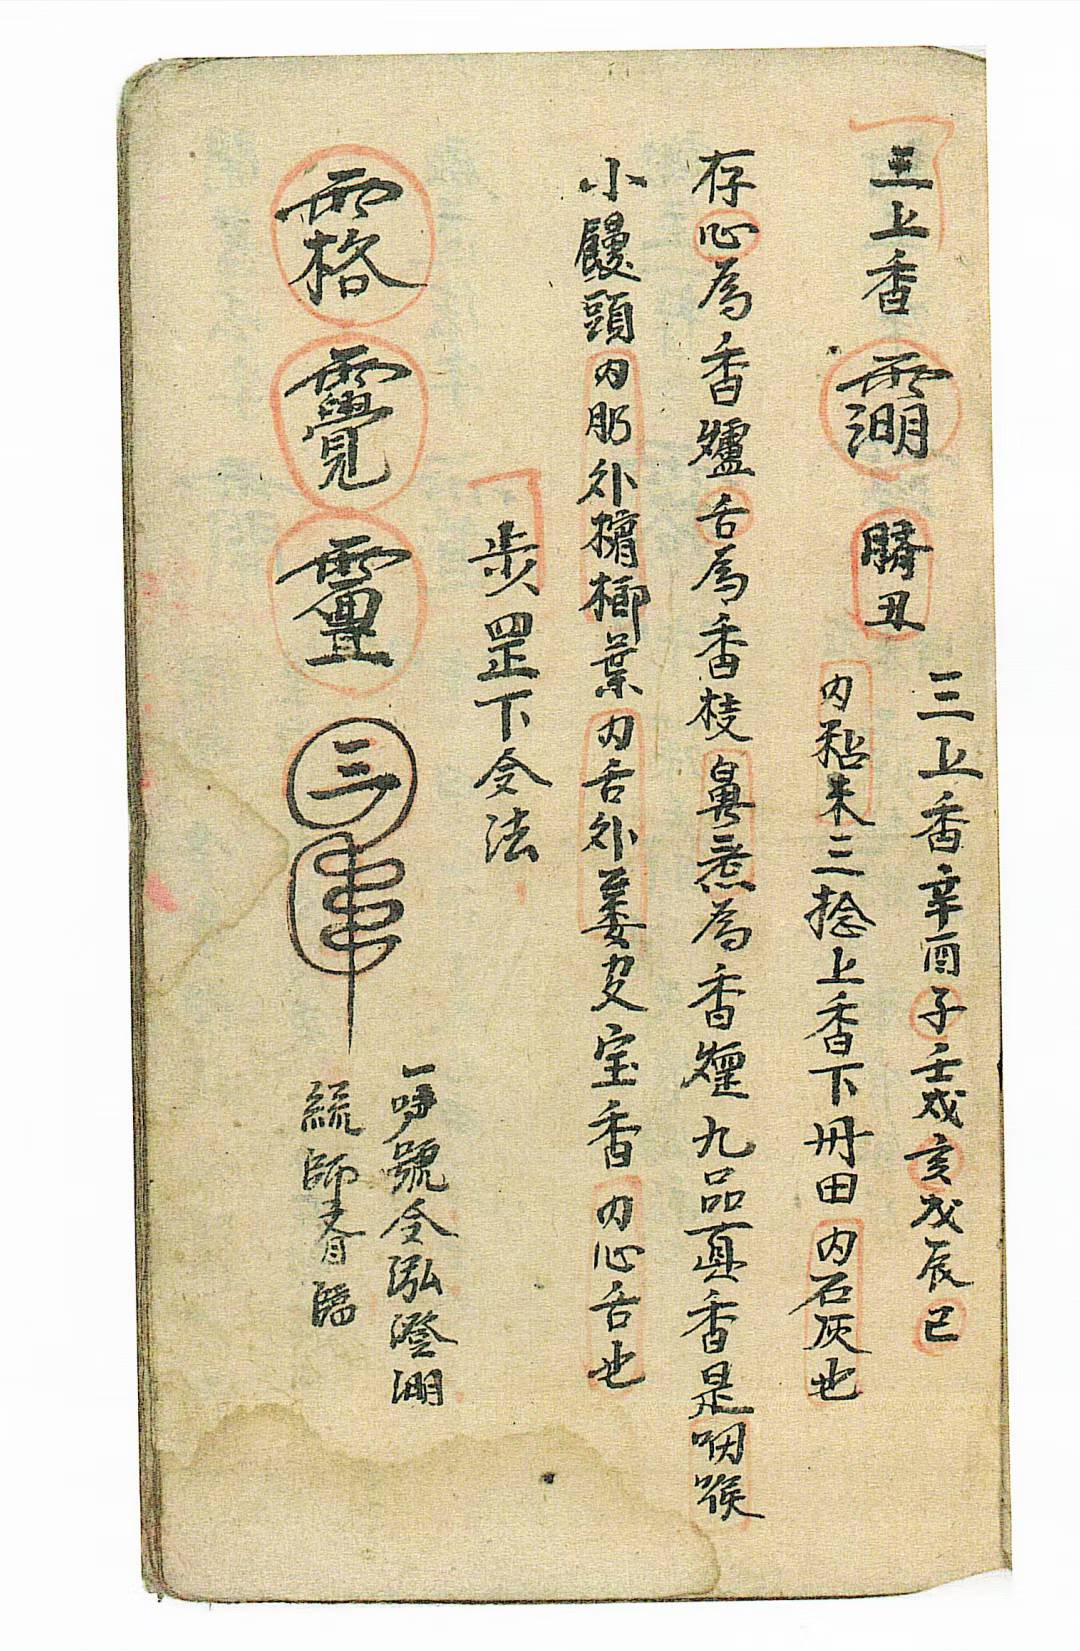 三上香 臍丑
三上香辛酉子壬戌亥戊辰巳
内粘米三捻上香下丹田内石灰也
存心為香爐舌為香枝鼻炁為香煙九品真香是咽喉
小饅頭内肋外檳榔葉内舌外蔞叐宝香内心舌也
步罡下令法
三
一呼號令泓澄淜
統師眷臨